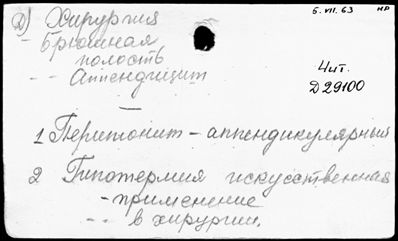 5.VII.63 НР
Д) Хирургия
- Брюшная
полость
- - Аппендицит
Чит.
D29100
1 Перитонит - аппендикулярный
2 Гипотермия искусственная
- применение
- - в хирургии.